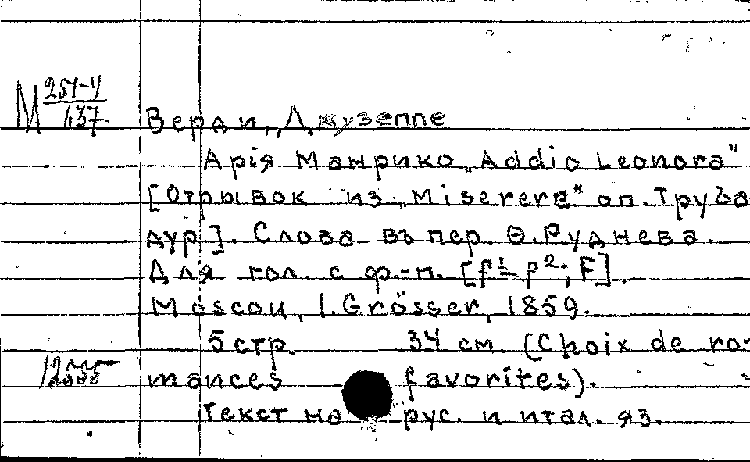 М 251-4/637
Верди, Джузеппе
Арія Манрико „Addio Leonora"
[Отрывок из „Miserere" оп. Труба
дур]. Слова въ пер. Ѳ. Руднева.
Для гол. с ф.-п. [f¹–f²; F].
Moscou, I. Grosser, 1859.
5 стр. 34 см. (Choix de ro-
mances favorites).
Текст на рус. и итал. яз.